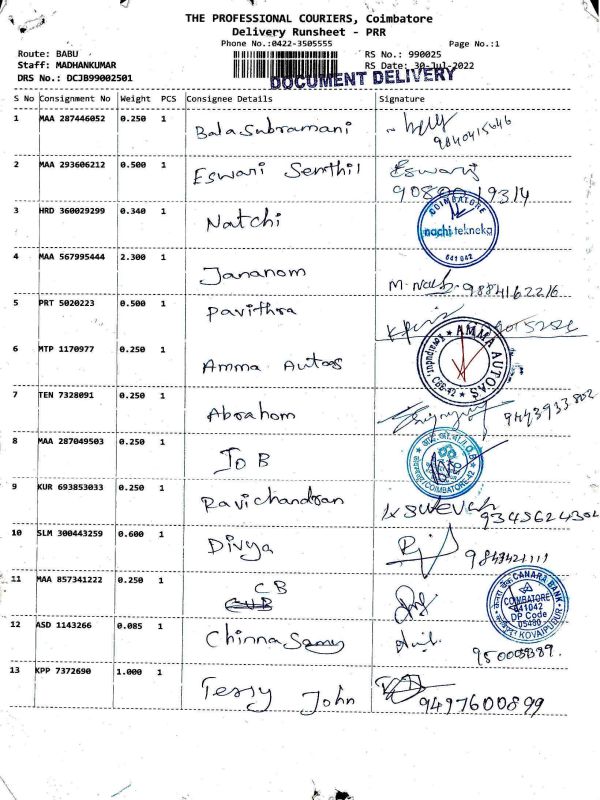 THE PROFESSIONAL COURIERS, Coimbatore
Delivery Runsheet - PRR
Phone No.:0422-3505555 Page No.:1
Route: BABU RS No.: 990025
Staff: MADHANKUMAR RS Date: 30-Jul-2022
DRS No.: DCJB99002501 DOCUMENT DELIVERY
S No Consignment No Weight PCS Consignee Details Signature
1 MAA 287446052 0.250 1 Balasubramani 9840415646
2 MAA 293606212 0.500 1 Eswari Senthil Eswari
3 HRD 360029299 0.340 1 Natchi
COIMBATORE nachi tekneka 641 042
4 MAA 567995444 2.300 1 Jananom 9884162216
5 PRT 5020223 0.500 1 Pavithra
6 MTP 1170977 0.250 1 Amma Autoos
AMMA AUTOAS CBE-42
7 TEN 7328091 0.250 1 Abrahom 9443933802
8 MAA 287049503 0.250 1 IOB
COIMBATORE-42
9 KUR 693853033 0.250 1 Ravichandran 9345624302
10 SLM 300443259 0.600 1 Divya 9843421111
11 MAA 857341222 0.250 1 CB
CANARA BANK COIMBATORE 641042 DP Code 05480 KOVAIPUDUR
12 ASD 1143266 0.085 1 Chinnasamy
13 KPP 7372690 1.000 1 Tessy John 9497600899